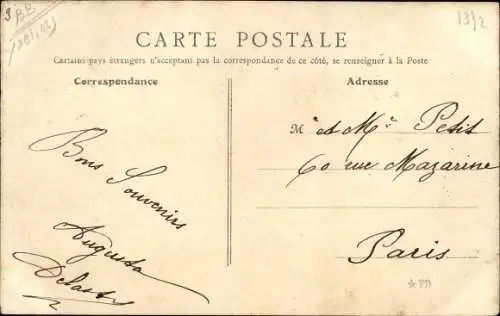 CARTE POSTALE
Certains pays étrangers n'acceptant pas la correspondance de ce côté, se renseigner à la Poste
Correspondance
Adresse
Bons Souvenirs
Augusta
M et Me Petit
60 rue Mazarine
Paris
1372